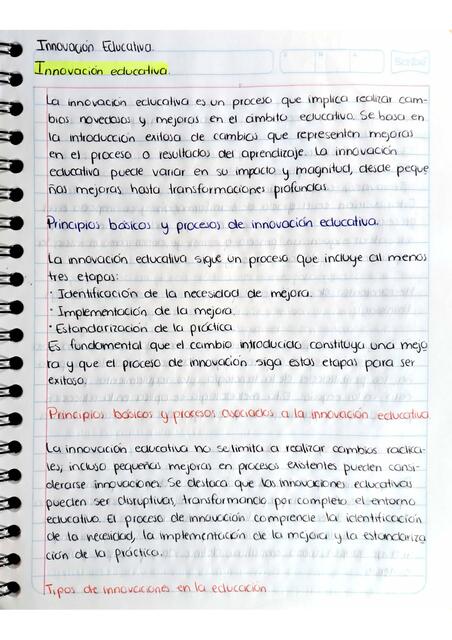 Innovación Educativa.
Scribe
Innovación educativa.
La innovación educativa es un proceso que implica realizar cam-
bios novedosos y mejoras en el ámbito educativo. Se basa en
la introducción exitosa de cambios que representen mejoras
en el proceso o resultados del aprendizaje. La innovación
educativa puede variar en su impacto y magnitud, desde peque
ñas mejoras hasta transformaciones profundas
Principios básicos y procesos de innovación educativa.
La innovación educativa sigue un proceso que incluye al menos
tres etapas:
· Identificación de la necesidad de mejora.
· Implementación de la mejora.
· Estandarización de la práctica
Es fundamental que el cambio introducido constituya una mejo
ra y que el proceso de innovación siga estas etapas para ser
exitoso.
Principios básicos y procesos asociados a la innovación educativa
La innovación educativa no se limita a realizar cambios radica-
les, incluso pequeñas mejoras en procesos existentes pueden consi-
derarse innovaciones. Se destaca que las innovaciones educativas
pueden ser disruptivas, transformando por completo el entorno
educativo. El proceso de innovación comprende la identificación
de la necesidad, la implementación de la mejora y la estandariza
ción de la práctica.
Tipos de innovaciones en la educación